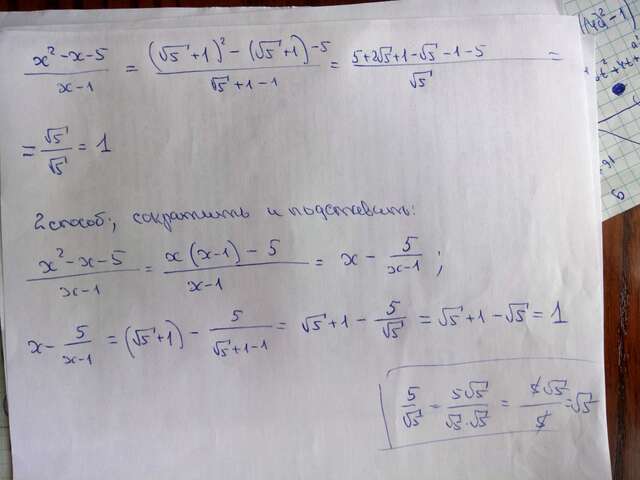 (x² - x - 5)/(x - 1) = ((√5 + 1)² - (√5 + 1) - 5)/(√5 + 1 - 1) = (5 + 2√5 + 1 - √5 - 1 - 5)/√5 =
= √5/√5 = 1
2 способ; сократить и подставить:
(x² - x - 5)/(x - 1) = (x(x - 1) - 5)/(x - 1) = x - 5/(x - 1) ;
x - 5/(x - 1) = (√5 + 1) - 5/(√5 + 1 - 1) = √5 + 1 - 5/√5 = √5 + 1 - √5 = 1
5/√5 = 5√5/(√5·√5) = 5√5/5 = √5